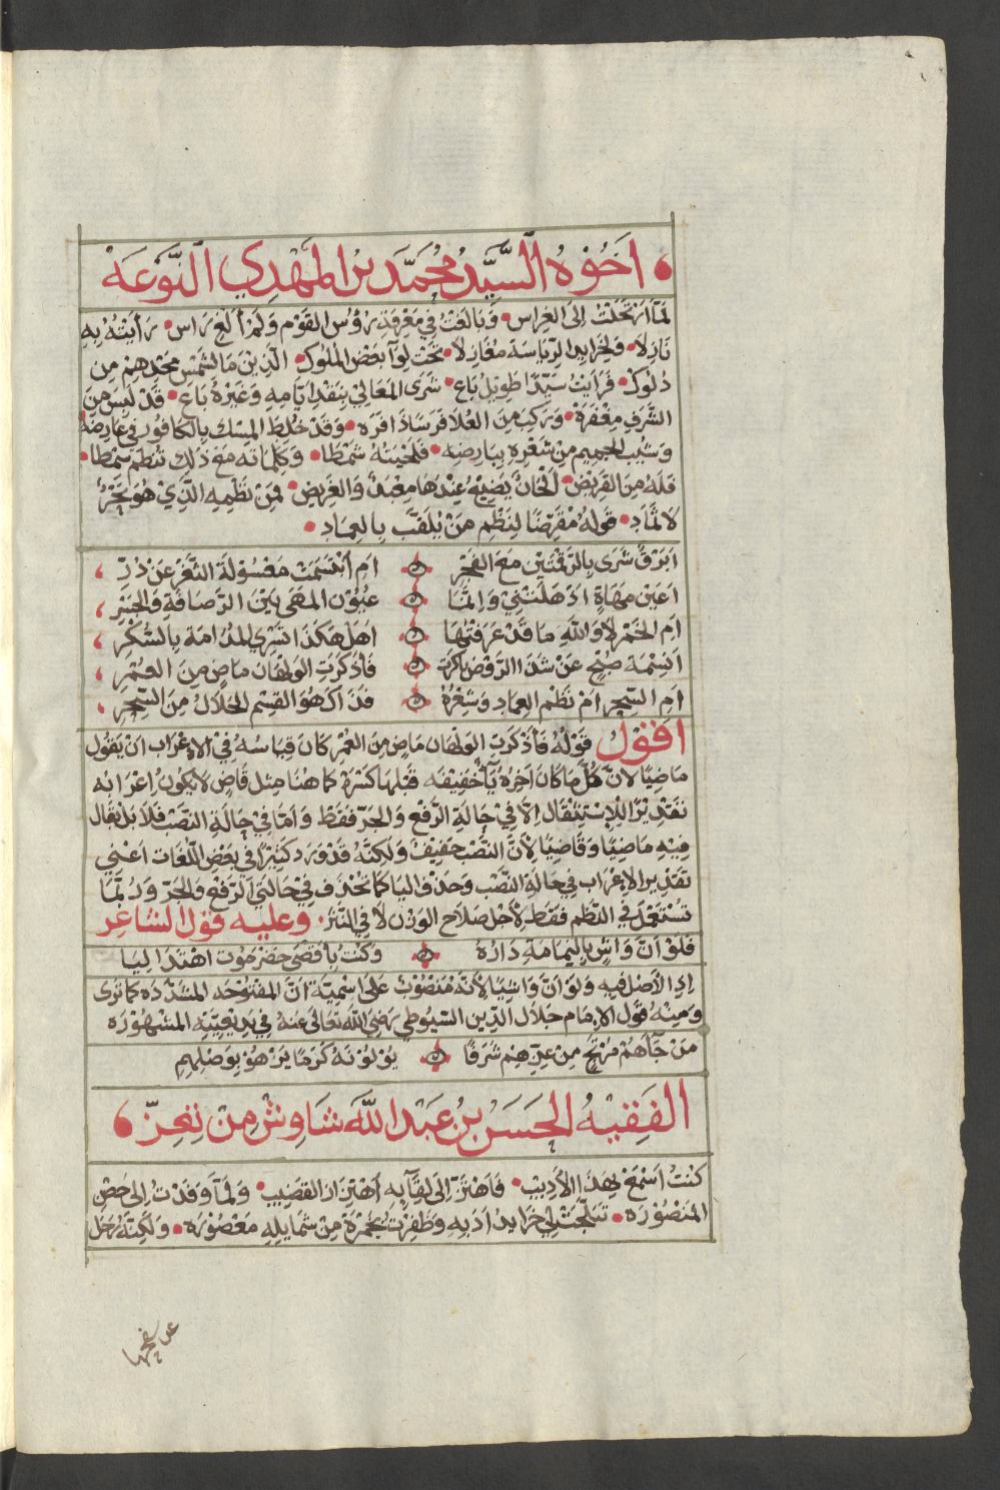 اخوه السيد محمد بن المهدي النوعه
لما ارتحلت الى الغراس • وبالغت في معرفة رؤس القوم ولم ألغ راس • رأيته به
نازلا • ولخرايد الرياسة مغازلا • تحت لوآ بعض الملوك • الذين ما لشمس مجدهم من
دلوك • فرأيت سيدا طويل باع • شرى المعالي بنقد ايامه وغيره باع • قد لبس من
الشرف مغفره • وركب من العلا فرسا ذا فره • وقد خلط المسك بالكافور في عارضه
وشيب الحميم من شعره ببارضه • فلحيته شمطا • وكلماته مع ذلك تنظم سمطا •
فله من القريض • الحان يصيبه عندها معبد والغريض • فمن نظمه الذي هو بحر
لا ثماد • قوله مقرضا لنظم من يلقب بالعماد •
ابرق شرى بالرقمتين مع الفجر ام ابتسمت معسولة الثغر عن در
اعين مهاة اذهلتني وانما عيون المهى بين الرصافة والجسر
ام الخمر لا والله ما قد عرفتها اهل هكذا تسري المدامة بالسكر
انسمة صبح عن شذا الروض باكرت فاذكرت الولهان ماض من العمر
ام السحر ام نظم العماد وشعره فذاك هو القسم الحلال من السحر
اقول قوله فاذكرت الولهان ماض من العمر كان قياسه في الاعراب ان يقول
ماضيا لان كل ما كان اخره يآ خفيفه قبلها كسرة كما هنا مثل قاض لا يكون اعرابه
تقديرا للاستثقال الا في حالة الرفع والجر فقط واما في حالة النصب فلا بل يقال
فيه ماضيا وقاضيا لأن النصب خفيف ولكنه قد ورد كثيرا في بعض اللغات اعني
تقدير الاعراب في حالة النصب وحذف اليا كما تحذف في حالتي الرفع والجر وربما
تستعمل في النظم فقط لأجل صلاح الوزن لا في النثر • وعليه قول الشاعر
فلو ان واش باليمامة داره وكنت بأقصى حضرموت اهتدا ليا
اذ الأصل فيه ولو ان واشيا لأنه منصوب على اسمية ان المفتوحه المشدده كما ترى
ومنه قول الإمام جلال الدين السيوطي رضي الله تعالى عنه في بديعيته المشهوره
من جآهم مرتج من عزهم شرفا يولونه كرما يزهو بوصلهم
الفقيه الحسن بن عبد الله شاوش من تفجن
كنت اسمع لهذا الأديب • فاهتز الى لقآيه اهتزاز القضيب • ولما وفدت الى حصن
المنصوره • تبلجت لي خرايد ادبه وظفرت بخمرة من شمايله معصوره • ولكنه رحل
عن